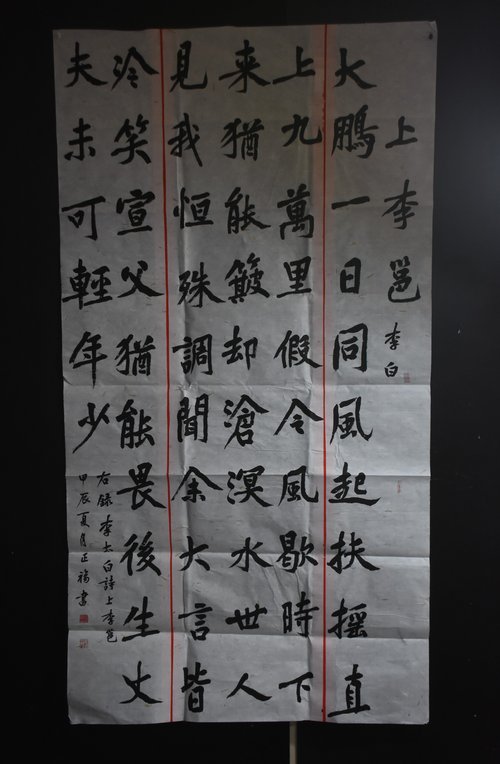 上李邕 李白
大鵬一日同風起扶摇直
上九萬里假令風歇時下
来猶能簸却滄溟水世人
見我恒殊調聞余大言皆
冷笑宣父猶能畏後生丈
夫未可輕年少
右録李太白詩上李邕
甲辰夏月正福書